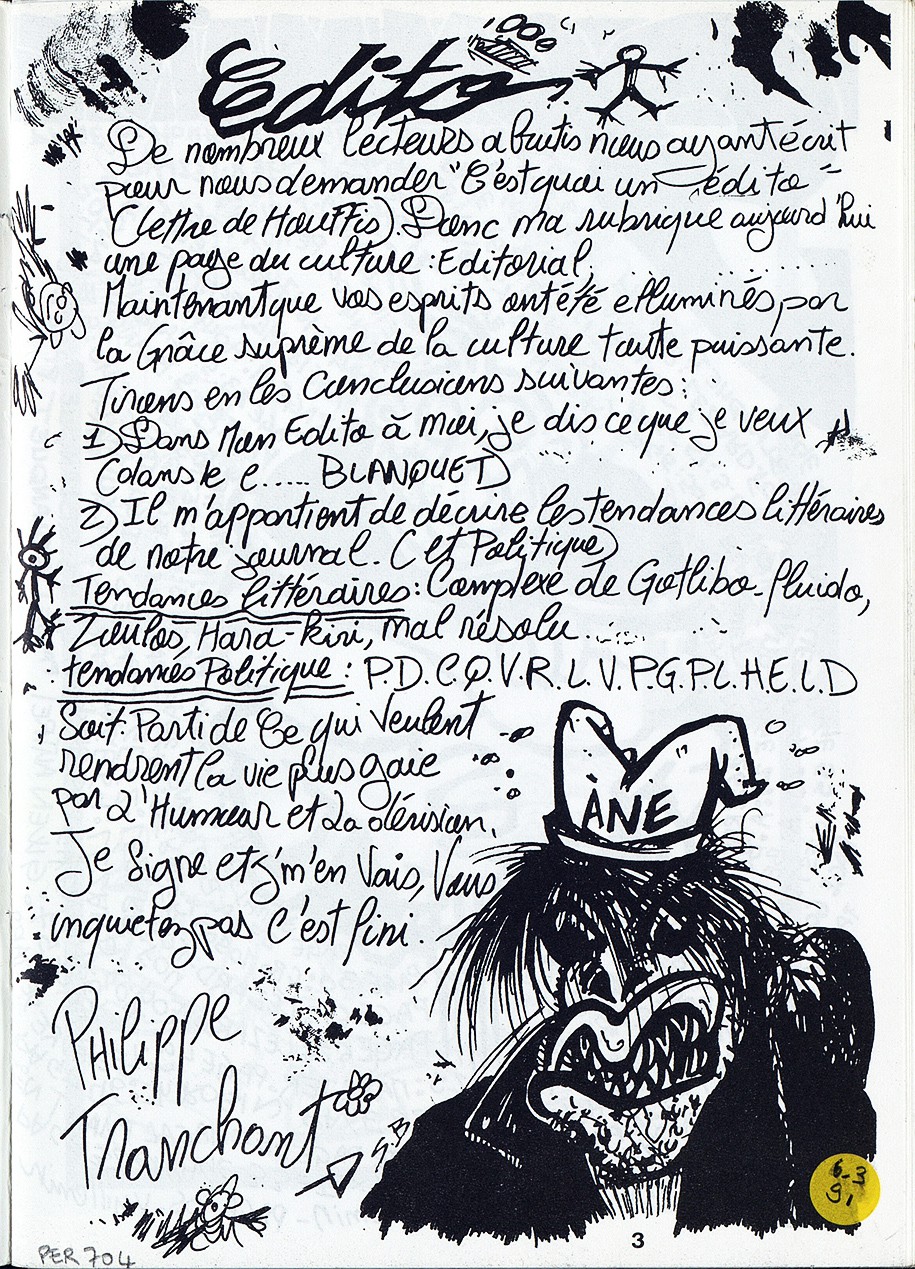 Edito
De nombreux lecteurs abrutis nous ayant écrit
pour nous demander "C'est quoi un édito"
(lettre de Houffis). Donc ma rubrique aujourd'hui
une page du culture : Editorial,
Maintenant que vos esprits ont été elluminés par
la Grâce suprème de la culture toute puissante.
Tirons en les Conclusions suivantes :
1) Dans Mon Edito à moi, je dis ce que je veux
(dans le c..... BLANQUET)
2) Il m'appartient de décrire les tendances littéraires
de notre journal. (et Politique)
Tendances littéraires : Complexe de Gotlibo-fluido,
Zoulos, Hara-kiri, mal résolu
tendances Politique : P.D.C.Q.V.R.L.V.P.G.P.L.H.E.L.D
Soit : Parti de Ce qui Veulent
rendrent la vie plus gaie
par L'Humour et La dérision.
Je Signe et j'm'en Vais, Vous
inquietez pas C'est fini.
ANE
Philippe
Tranchant
S.B
6-3
91
3
PER 704